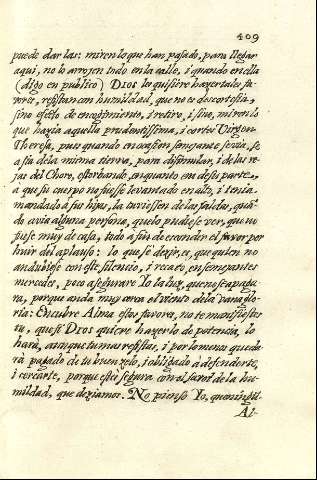 409
puede dar las: miren lo que han pasado, para llegar
aqui, no lo arrojen todo en la calle, i quando en ella
(digo en publico) Dios lo quisiere hazer tales fa-
vores, resistan con humildad, que no es descortesia,
sino efeto de encogimiento, i retiro, i sino, miren lo
que hazia aquella prudentissima, i cortes Virgen
Theresa, pues quando en ocasion semejante se via, se
a su de la misma tierra, para dissimular, i de las re-
jas del Choro, estorbando, en quanto era de su parte,
a que su cuerpo no fuesse levantado en alto, i tenia
mandado a sus hijas, la tuviessen de las faldas, quan-
do avia alguna persona, que lo pudiese ver, que no
fuese muy de casa, todo a fin de esconder el favor por
huir del aplauso: lo que se dezir, es, que quien no
anduviese con este silencio, i recato en semejantes
mercedes, poco asegurare Yo la luz, que no se apaga-
ra, porque anda muy cerca el viento de la vanaglo-
ria: Encubre Alma estos favores, no te manifiestes
tu, que si Dios quiere hazerlo de potencia, lo
hará, aunque tu mas resistas, i por lo menos queda-
rà pagado de tu buen zelo, i obligado à defenderte,
i cercarte, porque estes segura con el de la hu-
mildad, que deziamos. No pienso Yo, que ningu
Al-